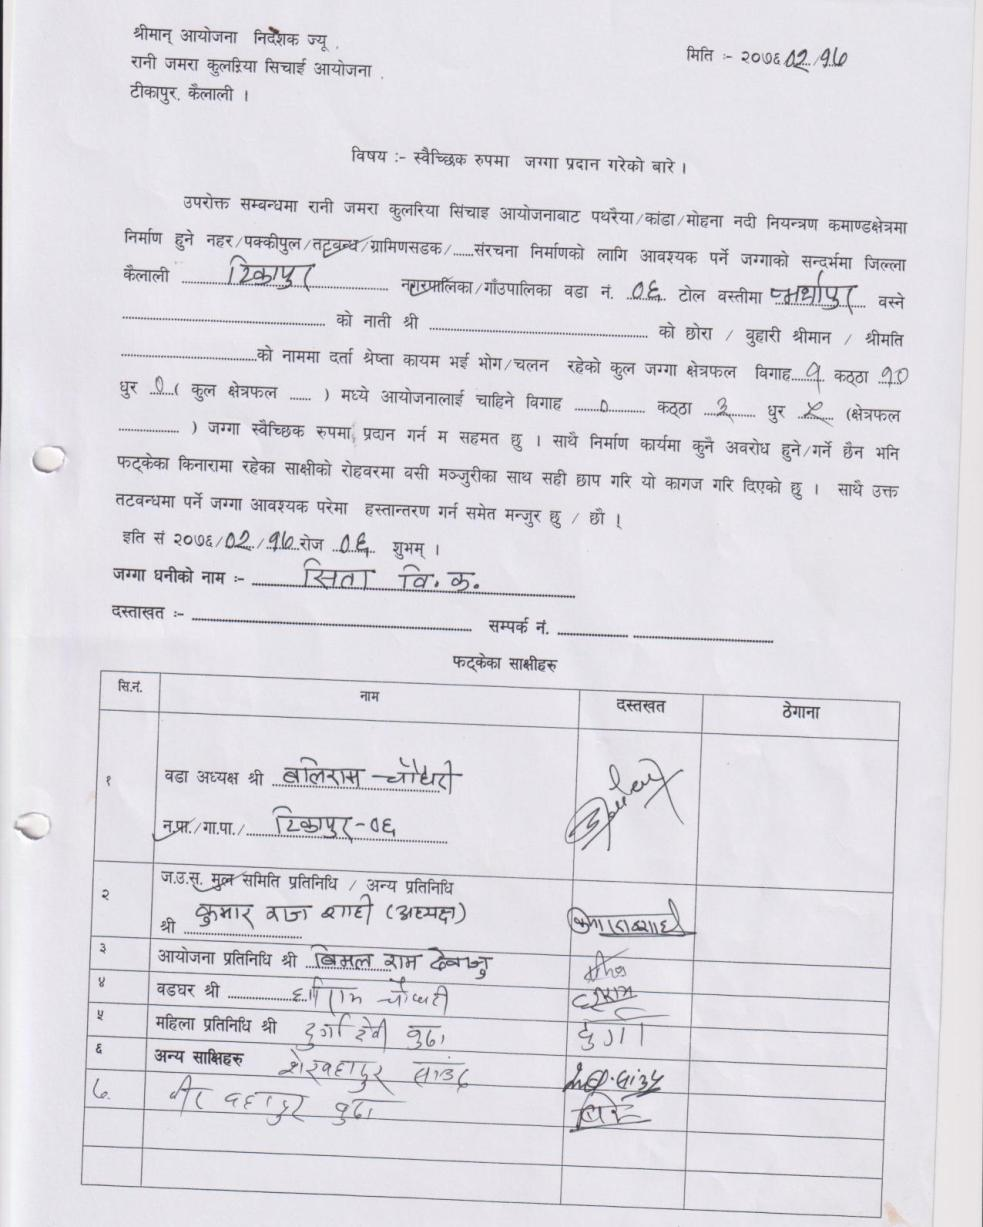 श्रीमान् आयोजना निर्देशक ज्यू ,
मिति :- २०७६/०२/१७
रानी जमरा कुलरिया सिचाई आयोजना ,
टीकापुर, कैलाली ।
विषय :- स्वैच्छिक रुपमा जग्गा प्रदान गरेको बारे ।
उपरोक्त सम्बन्धमा रानी जमरा कुलरिया सिंचाइ आयोजनाबाट पथरैया/कांडा/मोहना नदी नियन्त्रण कमाण्डक्षेत्रमा
निर्माण हुने नहर/पक्कीपुल/तटबन्ध/ग्रामिणसडक/......संरचना निर्माणको लागि आवश्यक पर्ने जग्गाको सन्दर्भमा जिल्ला
कैलाली टिकापुर नगरपालिका/गाँउपालिका वडा नं. ०६ टोल वस्तीमा वस्ने
को नाती श्री को छोरा / वुहारी श्रीमान / श्रीमति
को नाममा दर्ता श्रेष्ता कायम भई भोग/चलन रहेको कुल जग्गा क्षेत्रफल विगाह १ कठ्ठा १०
धुर ० ( कुल क्षेत्रफल ...... ) मध्ये आयोजनालाई चाहिने विगाह ० कठ्ठा ३ धुर (क्षेत्रफल
) जग्गा स्वैच्छिक रुपमा प्रदान गर्न म सहमत छु । साथै निर्माण कार्यमा कुनै अवरोध हुने/गर्ने छैन भनि
फट्केका किनारामा रहेका साक्षीको रोहवरमा वसी मञ्जुरीका साथ सही छाप गरि यो कागज गरि दिएको छु । साथै उक्त
तटवन्धमा पर्ने जग्गा आवश्यक परेमा हस्तान्तरण गर्न समेत मन्जुर छु / छौ ।
इति सं २०७६/०२/१७ रोज ०६ शुभम् ।
जग्गा धनीको नाम :- सिता वि. क.
दस्ताखत :- सम्पर्क नं.
फट्केका साक्षीहरु
सि.नं. नाम दस्तखत ठेगाना
१ वडा अध्यक्ष श्री बलिराम चौधरी
न.पा./गा.पा./ टिकापुर-०६
२ ज.उ.स. मुल समिति प्रतिनिधि / अन्य प्रतिनिधि
श्री कुमार राज शाही (अध्यक्ष)
३ आयोजना प्रतिनिधि श्री बिमल राम
४ वडघर श्री चौधरी
५ महिला प्रतिनिधि श्री दुर्गा देवी वुढा दुर्गा
६ अन्य साक्षिहरु शेरबहादुर सांउद
७. वीर बहादुर वुढा